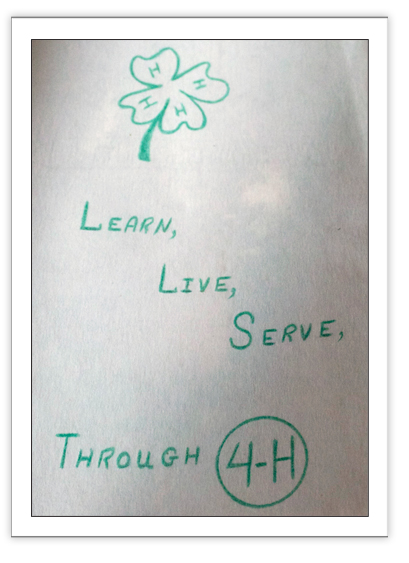 H H
H H
LEARN,
LIVE,
SERVE,
THROUGH 4-H